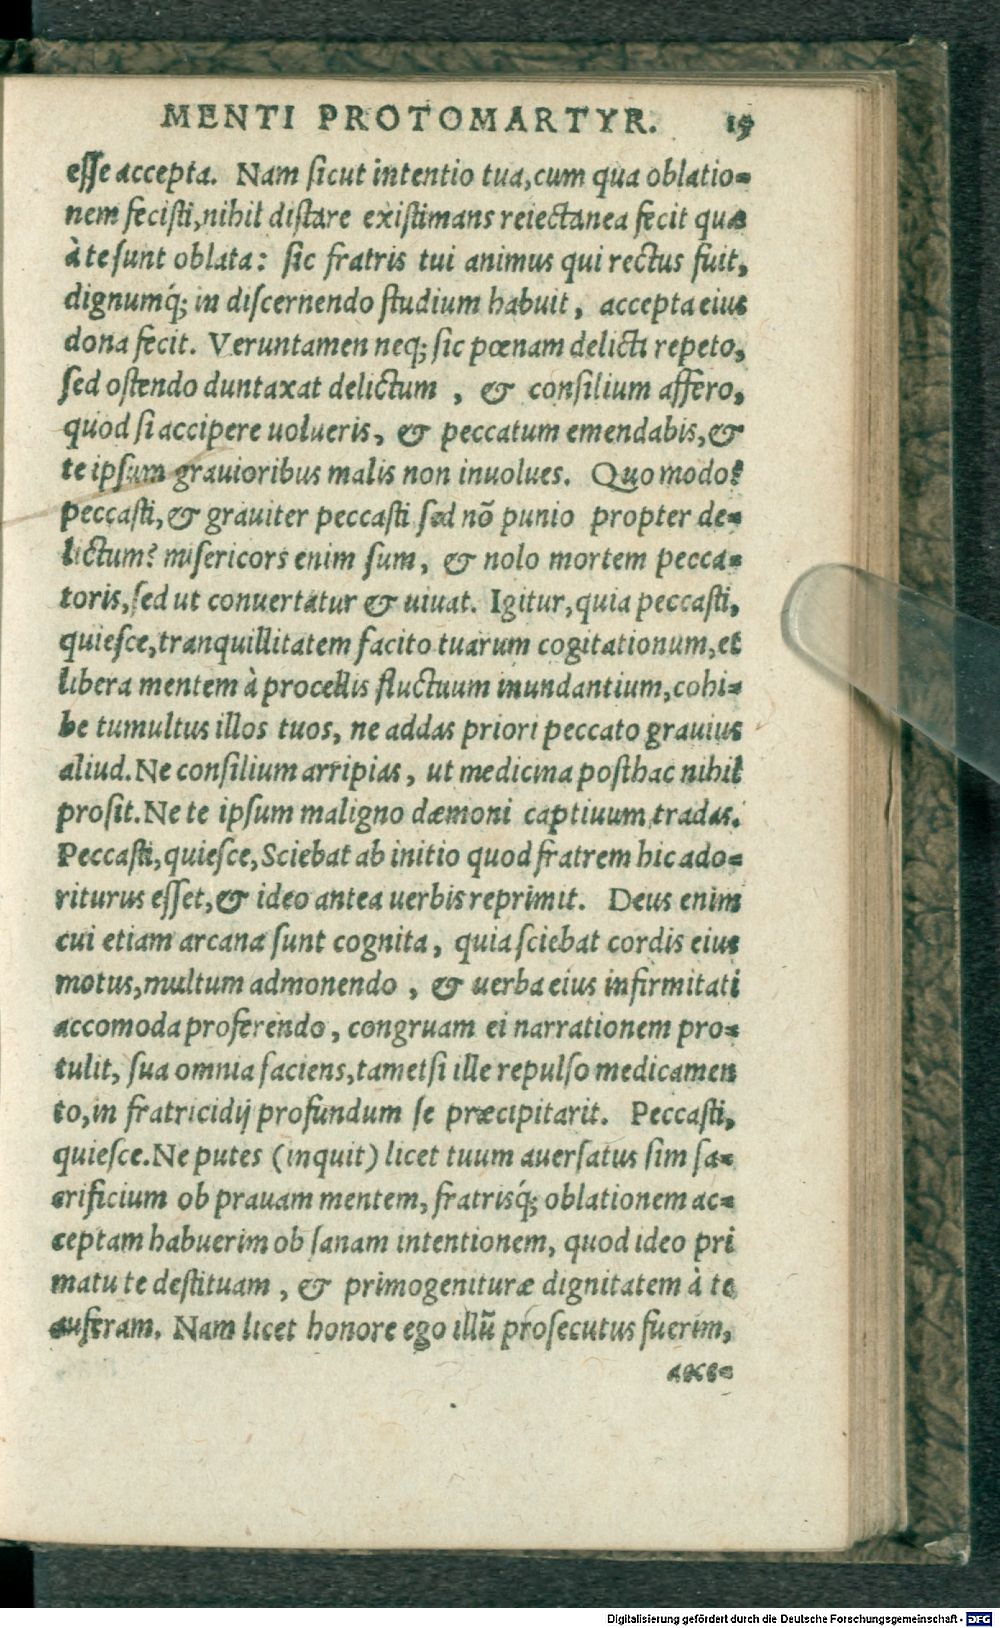 MENTI PROTOMARTYR. 15
esse accepta. Nam sicut intentio tua, cum qua oblatio=
nem fecisti, nihil distare existimans reiectanea fecit quæ
à te sunt oblata: sic fratris tui animus qui rectus fuit,
dignumq́; in discernendo studium habuit, accepta eius
dona fecit. Veruntamen neq; sic pœnam delicti repeto,
sed ostendo duntaxat delictum, & consilium affero,
quod si accipere uolueris, & peccatum emendabis, &
te ipsum grauioribus malis non inuolues. Quo modo?
peccasti, & grauiter peccasti sed nō punio propter de=
lictum? misericors enim sum, & nolo mortem pecca=
toris, sed ut conuertatur & uiuat. Igitur, quia peccasti,
quiesce, tranquillitatem facito tuarum cogitationum, et
libera mentem à procellis fluctuum inundantium, cohi=
be tumultus illos tuos, ne addas priori peccato grauius
aliud. Ne consilium arripias, ut medicina posthac nihil
prosit. Ne te ipsum maligno dæmoni captiuum tradas.
Peccasti, quiesce, Sciebat ab initio quod fratrem hic ado=
riturus esset, & ideo antea uerbis reprimit. Deus enim
cui etiam arcana sunt cognita, quia sciebat cordis eius
motus, multum admonendo, & uerba eius infirmitati
accomoda proferendo, congruam ei narrationem pro=
tulit, sua omnia faciens, tametsi ille repulso medicamen
to, in fratricidij profundum se præcipitarit. Peccasti,
quiesce. Ne putes (inquit) licet tuum auersatus sim sa=
crificium ob prauam mentem, fratrisq́; oblationem ac=
ceptam habuerim ob sanam intentionem, quod ideo pri
matu te destituam, & primogenituræ dignitatem à te
auferam. Nam licet honore ego illū prosecutus fuerim,
Digitalisierung gefördert durch die Deutsche Forschungsgemeinschaft - DFG